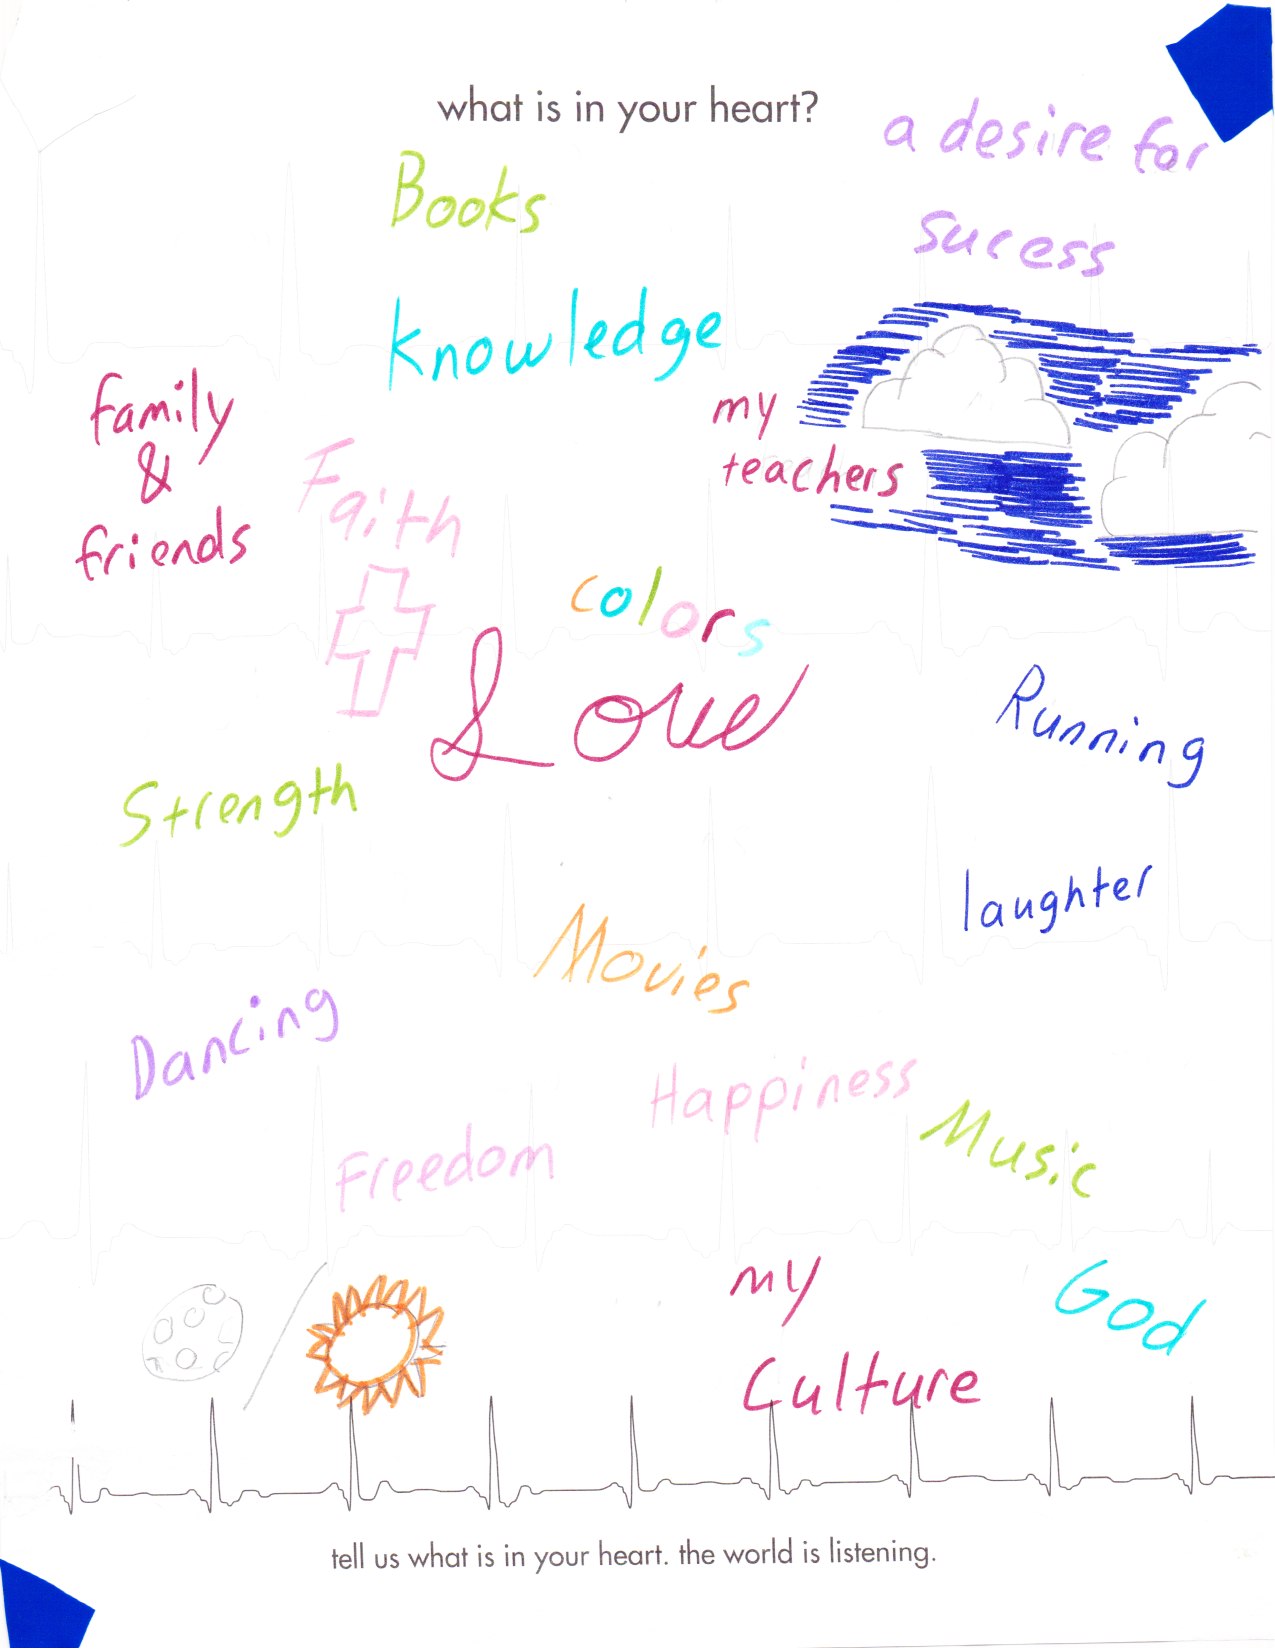 what is in your heart?
a desire for
sucess
Books
knowledge
family
&
friends
my
teachers
Faith
colors
Love
Running
Strength
laughter
Movies
Dancing
Happiness
Music
Freedom
my
Culture
God
tell us what is in your heart. the world is listening.